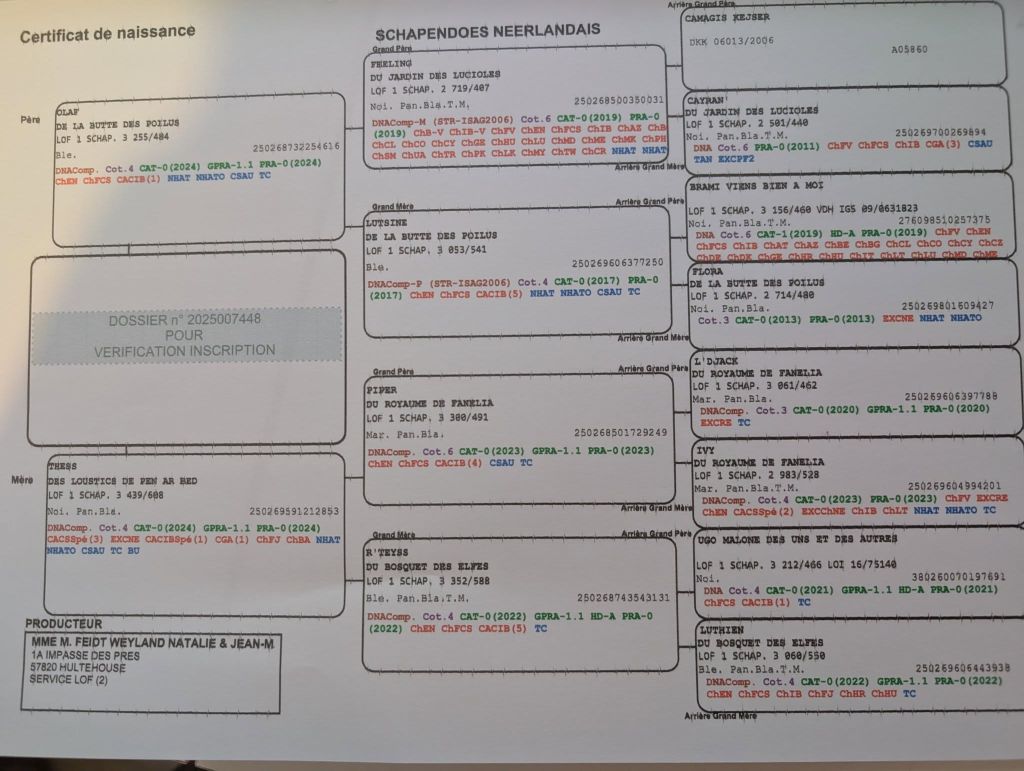 Certificat de naissance
SCHAPENDOES NEERLANDAIS
Père
OLAF
DE LA BUTTE DES POILUS
LOF 1 SCHAP. 3 255/484
Ble.
250268732254616
DNAComp. Cot.4 CAT-0(2024) GPRA-1.1 PRA-0(2024)
ChEN ChFCS CACIB(1) NHAT NHATO CSAU TC
DOSSIER n° 2025007448
POUR
VERIFICATION INSCRIPTION
Mère
THESS
DES LOUSTICS DE PEN AR BED
LOF 1 SCHAP. 3 439/608
Noi. Pan.Bla.
250269591212853
DNAComp. Cot.4 CAT-0(2024) GPRA-1.1 PRA-0(2024)
CACSSpé(3) EXCNE CACIBSpé(1) CGA(1) ChFJ ChBA NHAT
NHATO CSAU TC BU
PRODUCTEUR
MME M. FEIDT WEYLAND NATALIE & JEAN-M
1A IMPASSE DES PRES
57820 HULTEHOUSE
SERVICE LOF (2)
Grand Père
FEELING
DU JARDIN DES LUCIOLES
LOF 1 SCHAP. 2 719/407
Noi. Pan.Bla.T.M.
250268500350031
DNAComp-M (STR-ISAG2006) Cot.6 CAT-0(2019) PRA-0
(2019) ChB-V ChIB-V ChFV ChEN ChFCS ChIB ChAZ ChB
ChCL ChCO ChCY ChGE ChHU ChLU ChMD ChME ChMK ChPH
ChSM ChUA ChTR ChPK ChLK ChMY ChTW ChCR NHAT NHAT
Grand Mère
LUTSINE
DE LA BUTTE DES POILUS
LOF 1 SCHAP. 3 053/541
Ble.
250269606377250
DNAComp-P (STR-ISAG2006) Cot.4 CAT-0(2017) PRA-0
(2017) ChEN ChFCS CACIB(5) NHAT NHATO CSAU TC
Grand Père
PIPER
DU ROYAUME DE FANELIA
LOF 1 SCHAP. 3 300/491
Mar. Pan.Bla.
250268501729249
DNAComp. Cot.6 CAT-0(2023) GPRA-1.1 PRA-0(2023)
ChEN ChFCS CACIB(4) CSAU TC
Grand Mère
R'TEYSS
DU BOSQUET DES ELFES
LOF 1 SCHAP. 3 352/588
Ble. Pan.Bla.T.M.
250268743543131
DNAComp. Cot.4 CAT-0(2022) GPRA-1.1 HD-A PRA-0
(2022) ChEN ChFCS CACIB(5) TC
Arrière Grand Père
CAMAGIS KEJSER
DKK 06013/2006
A05860
CAYRAN
DU JARDIN DES LUCIOLES
LOF 1 SCHAP. 2 501/440
Noi. Pan.Bla.T.M.
250269700269894
DNA Cot.6 PRA-0(2011) ChFV ChFCS ChIB CGA(3) CSAU
TAN EXCPF2
Arrière Grand Mère
Arrière Grand Père
BRAMI VIENS BIEN A MOI
LOF 1 SCHAP. 3 156/460 VDH IGS 09/0631823
Noi. Pan.Bla.T.M.
276098510257375
DNA Cot.6 CAT-1(2019) HD-A PRA-0(2019) ChFV ChEN
ChFCS ChIB ChAT ChAZ ChBE ChBG ChCL ChCO ChCY ChCZ
ChDE ChDK ChGE ChHR ChHU ChIT ChLT ChLU ChMD ChME
FLORA
DE LA BUTTE DES POILUS
LOF 1 SCHAP. 2 714/480
Noi. Pan.Bla.
250269801609427
Cot.3 CAT-0(2013) PRA-0(2013) EXCNE NHAT NHATO
Arrière Grand Mère
Arrière Grand Père
L'DJACK
DU ROYAUME DE FANELIA
LOF 1 SCHAP. 3 061/462
Mar. Pan.Bla.
250269606397788
DNAComp. Cot.3 CAT-0(2020) GPRA-1.1 PRA-0(2020)
EXCRE TC
IVY
DU ROYAUME DE FANELIA
LOF 1 SCHAP. 2 983/528
Mar. Pan.Bla.T.M.
250269604994201
DNAComp. Cot.4 CAT-0(2023) PRA-0(2023) ChFV EXCRE
ChEN CACSSpé(2) EXCChNE ChIB ChLT NHAT NHATO TC
Arrière Grand Mère
Arrière Grand Père
UGO MALONE DES UNS ET DES AUTRES
LOF 1 SCHAP. 3 212/466 LOI 16/75140
Noi.
380260070197691
DNA Cot.4 CAT-0(2021) GPRA-1.1 HD-A PRA-0(2021)
ChFCS CACIB(1) TC
LUTHIEN
DU BOSQUET DES ELFES
LOF 1 SCHAP. 3 060/550
Ble. Pan.Bla.T.M.
250269606443938
DNAComp. Cot.4 CAT-0(2022) GPRA-1.1 PRA-0(2022)
ChEN ChFCS ChIB ChFJ ChHR ChHU TC
Arrière Grand Mère